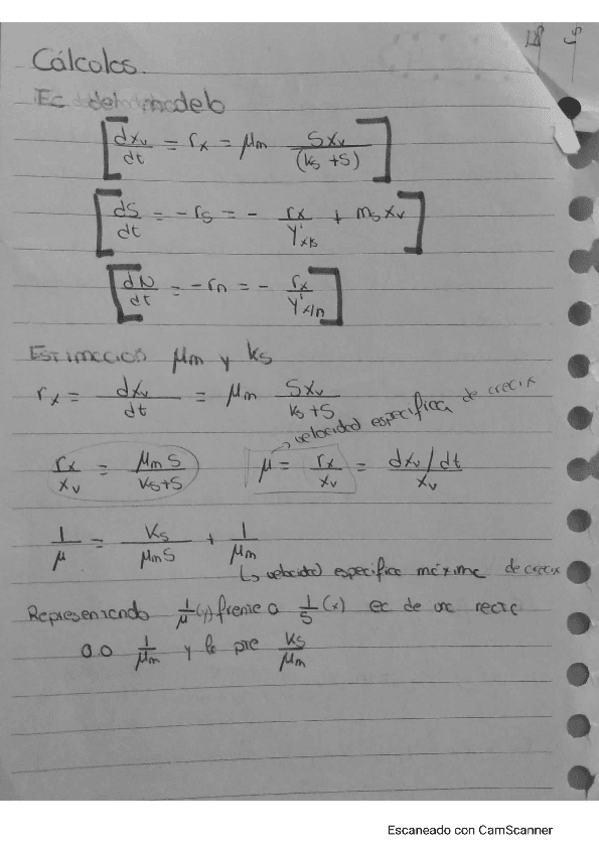 Cálculos.
Ec del modelo
dxv/dt = rx = μm Sxv/(ks+S)
dS/dt = -rs = - rx/Y'x/s + ms xv
dN/dt = -rn = - rx/Y'x/n
Estimacion μm y ks
rx = dxv/dt = μm Sxv/ks+S
rx/xv = μm S/ks+S μ = rx/xv = dxv/dt/xv
→ velocidad especifica de crecix
1/μ = ks/μm S + 1/μm
↳ velocidad especifica máxima de crecix
Representando 1/μ (y) frente a 1/S (x) ec de una recta
o.o 1/μm y la pte ks/μm
Escaneado con CamScanner